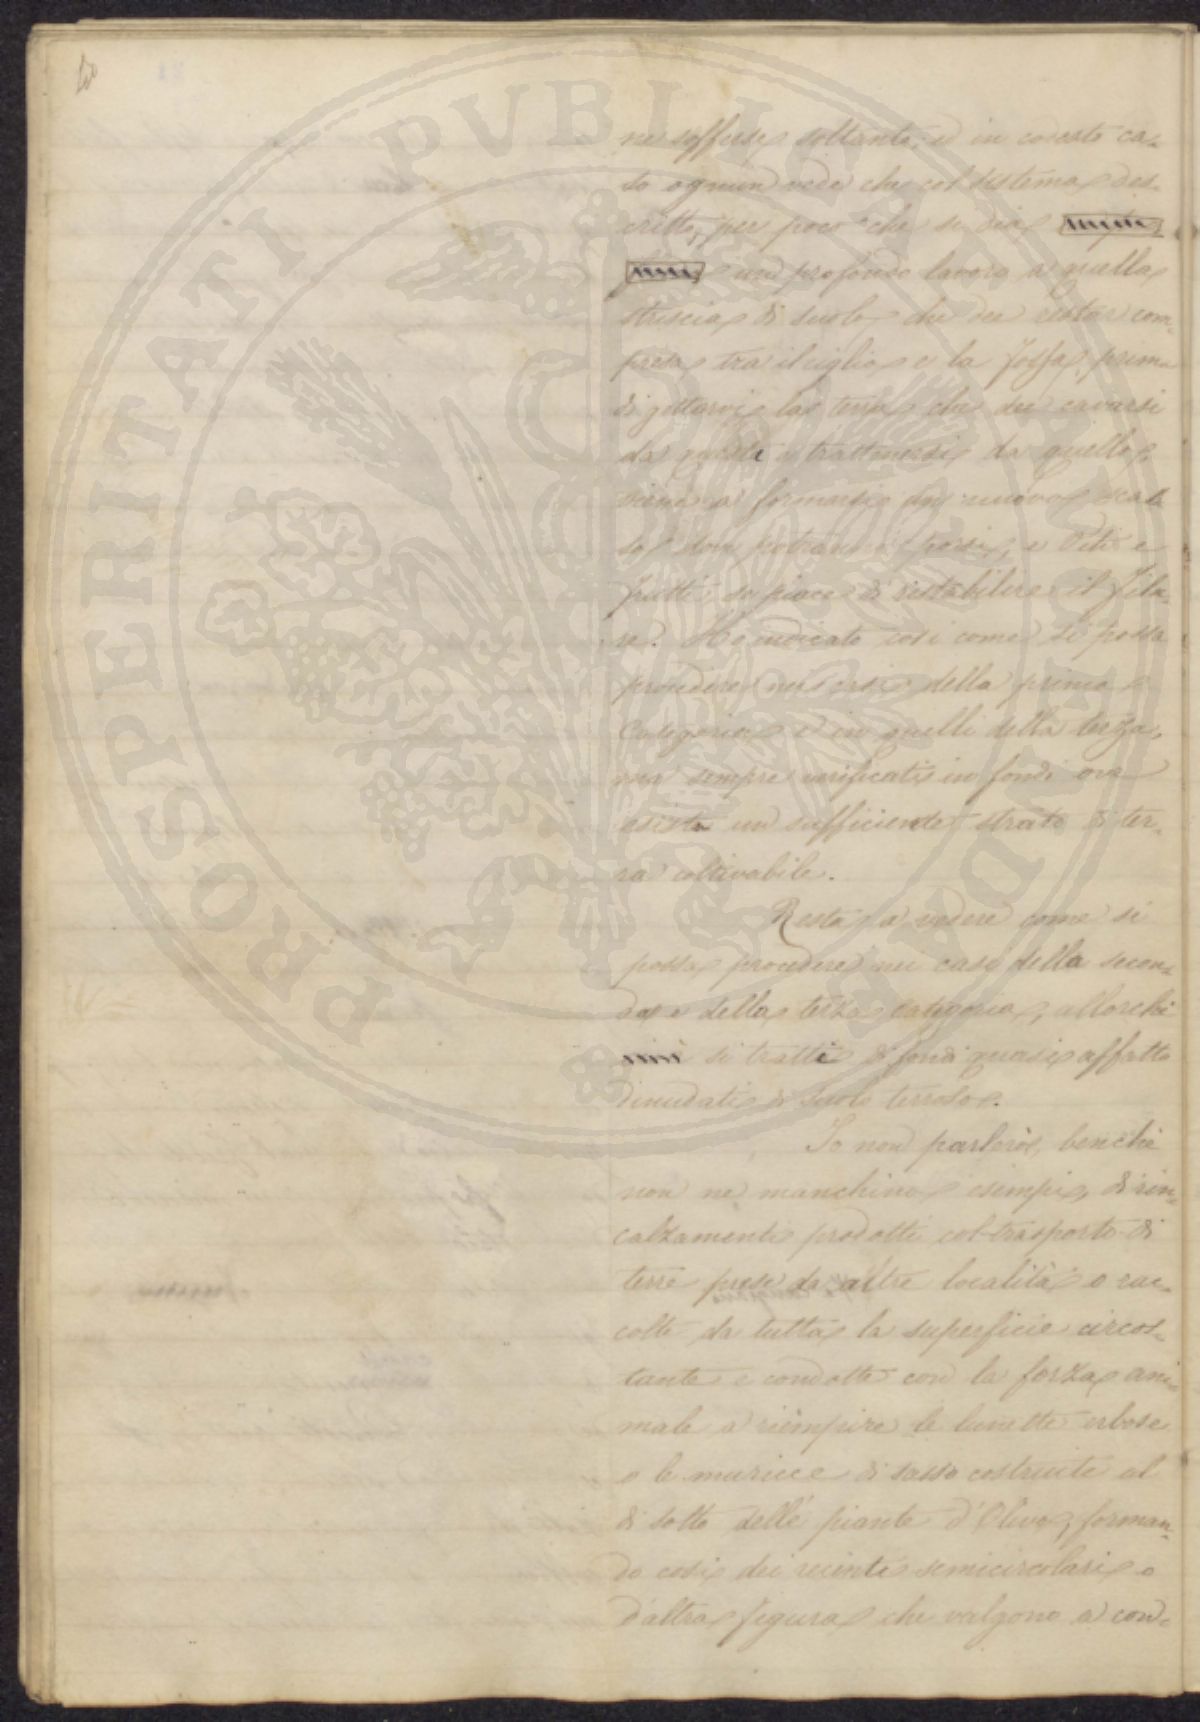 PROSPERITATI PUBLICAE AUGENDAE
ne soffuse soltanto; ed in codesto ca-
so ognun vede che col sistema des-
critto, per poco che si dia
un profondo lavoro a quella
striscia di suolo che dee restar com-
presa tra il ciglio e la fossa, prima
di gettarvi la terra che dee cavarsi
da questa e trattenersi da quello,
viene a formarsi un nuovo scas-
so dove potranno porsi, e Viti e
frutti se piace di ristabilire il fila-
re. Ho indicato così come si possa
procedere nei casi della prima
Categoria e in quelli della terza,
ma sempre verificati in fondi ove
esista un sufficiente strato di ter-
ra coltivabile.
Resta a vedere come si
possa procedere nei casi della secon-
da e della terza categoria, allorchè
si tratti di fondi quasi affatto
dinudati di suolo terroso.
Io non parlerò, benchè
non ne manchino esempi, di rin-
calzamenti prodotti col trasporto di
terre prese da altre località o rac-
colte da tutta la superficie circos-
tante e condotte con la forza ani-
male a riempire le lunette erbose
o le muricce di sasso costruite al
di sotto delle piante d'Olivo, forman-
do così dei recinti semicircolari o
d'altra figura che valgono a con-